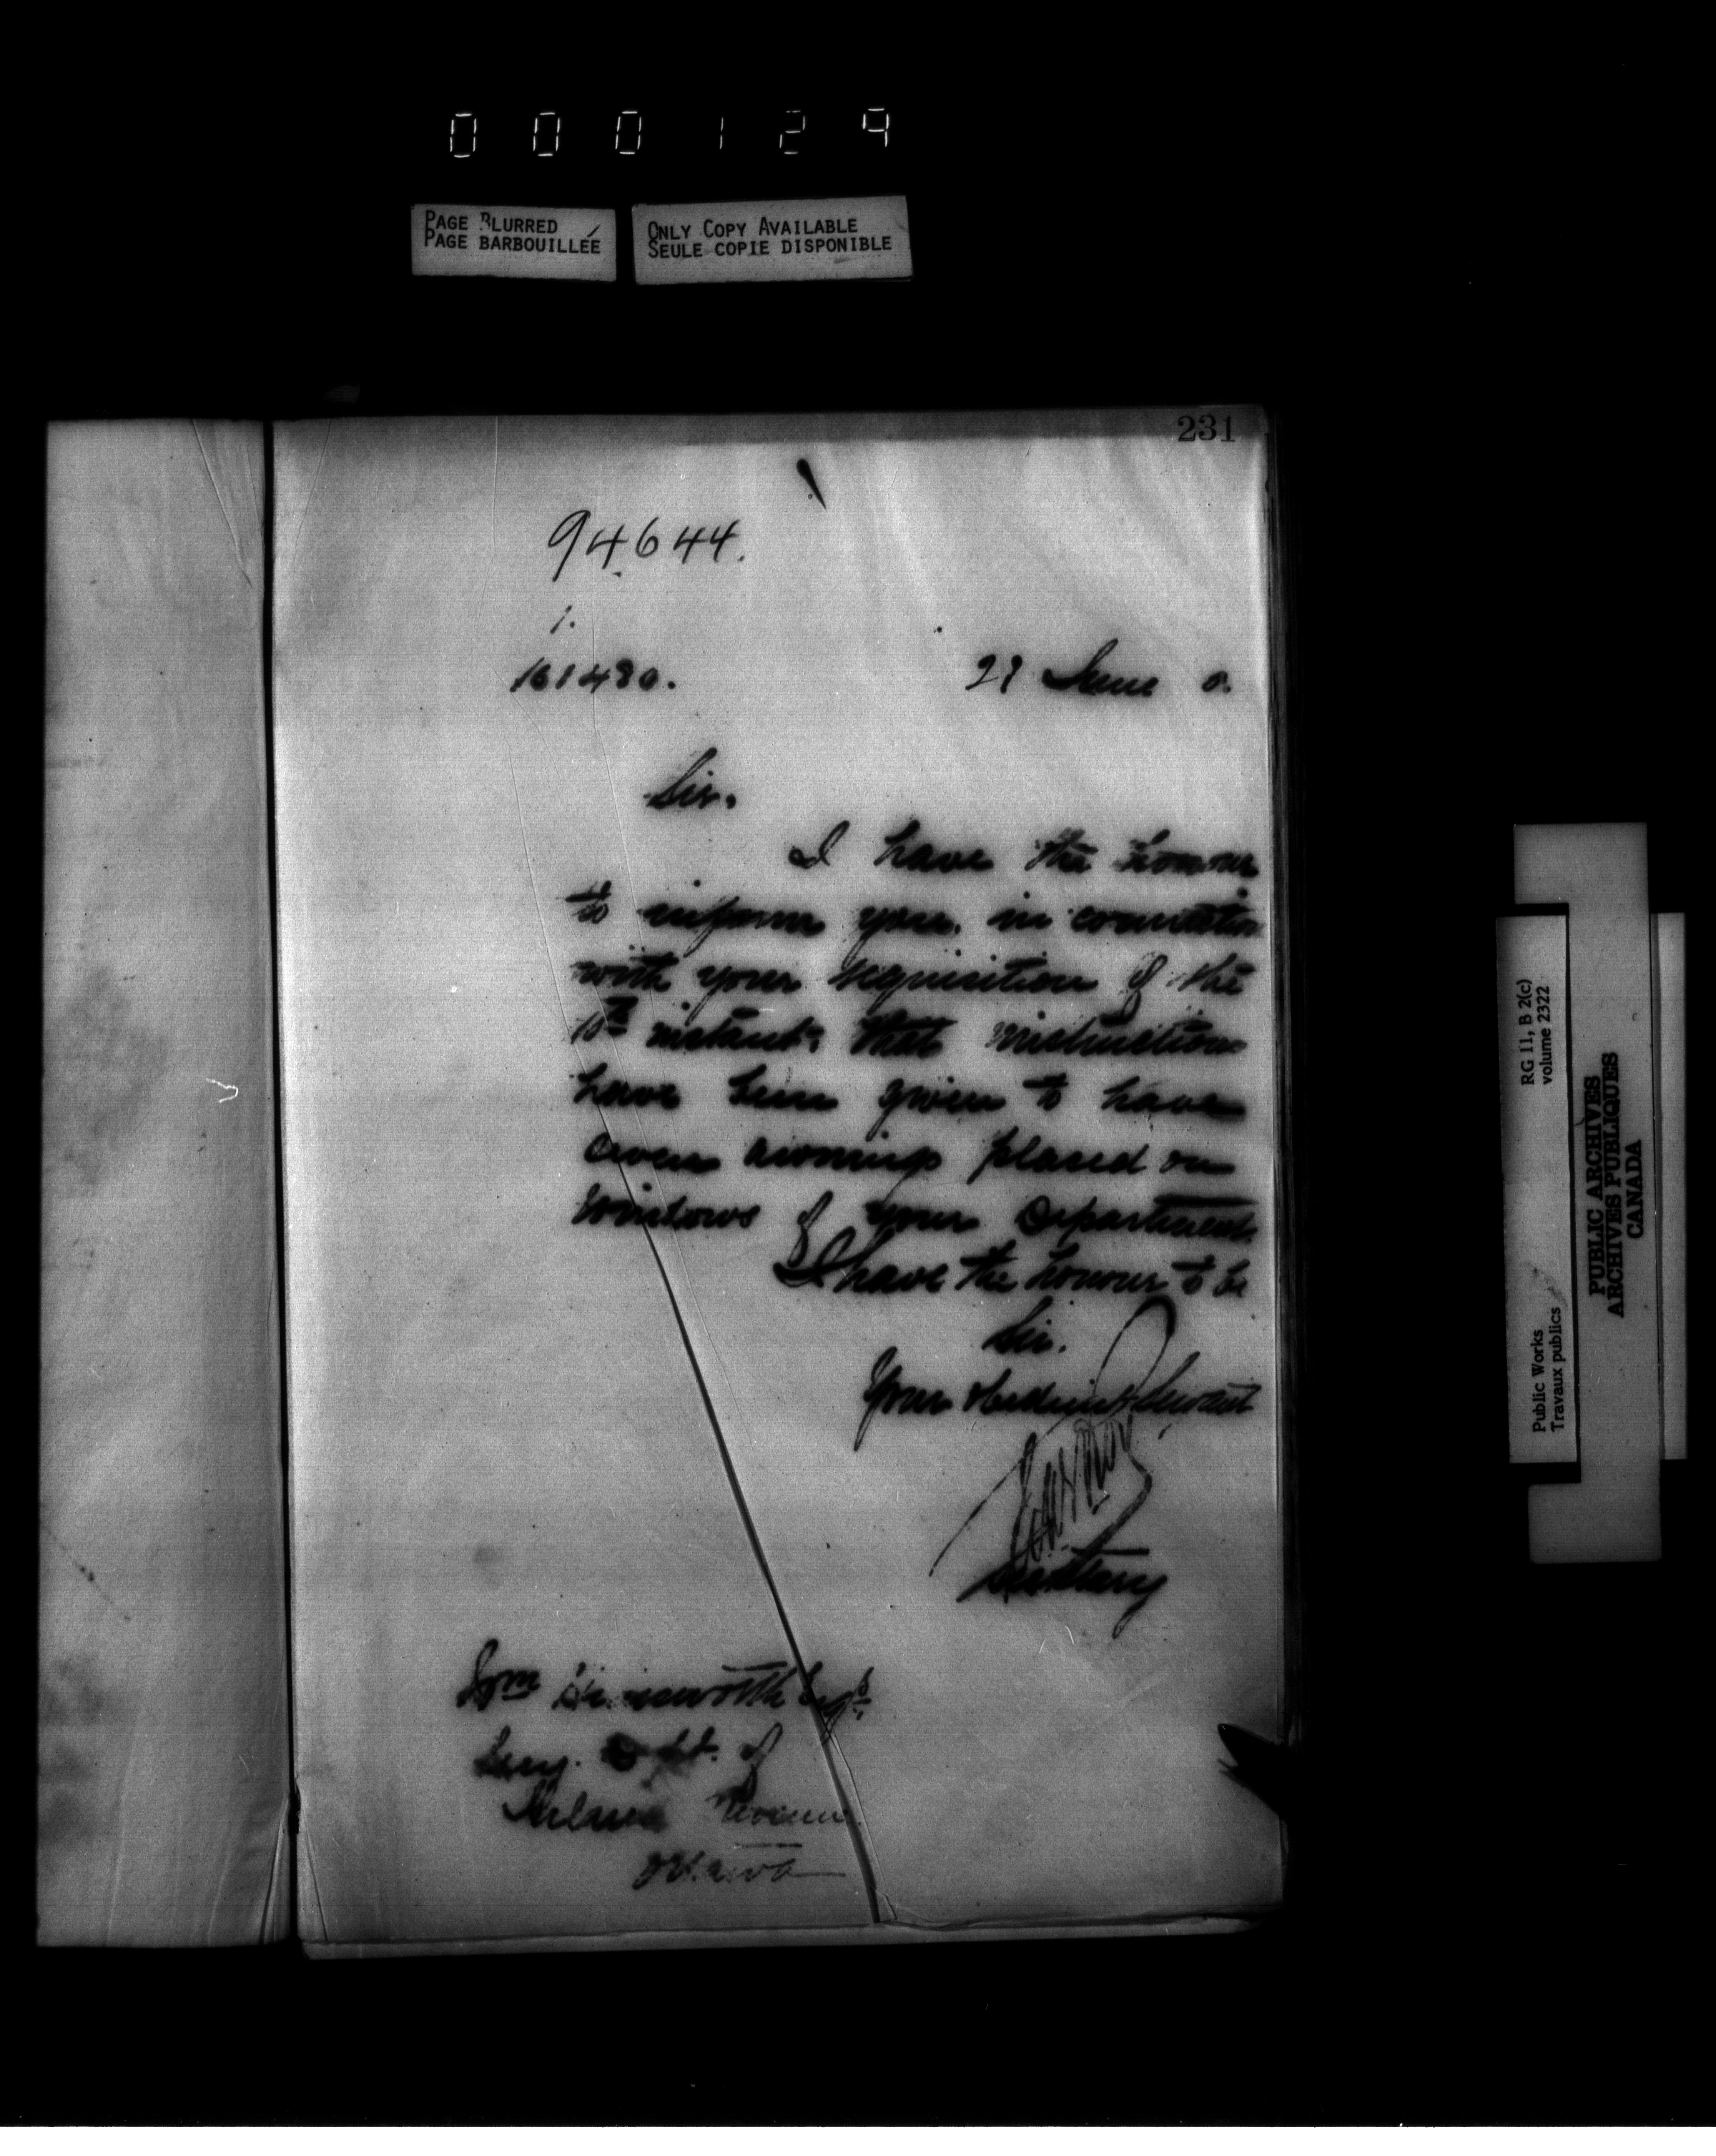 000129
PAGE BLURRED
PAGE BARBOUILLÉE
ONLY COPY AVAILABLE
SEULE COPIE DISPONIBLE
231
94644.
1.
101480.
June
Sir,
I have the honour
to inform you, in connection
with your requisition of the
instant, that instructions
have been given to have
awnings placed on
windows of your Department.
I have the honour to be
Sir.
Your obedient Servant
Secretary
Wm Himsworth Esqr
Secy. Dept. of
Inland Revenue
Ottawa
RG 11, B 2(c)
volume 2322
Public Works
Travaux publics
PUBLIC ARCHIVES
ARCHIVES PUBLIQUES
CANADA